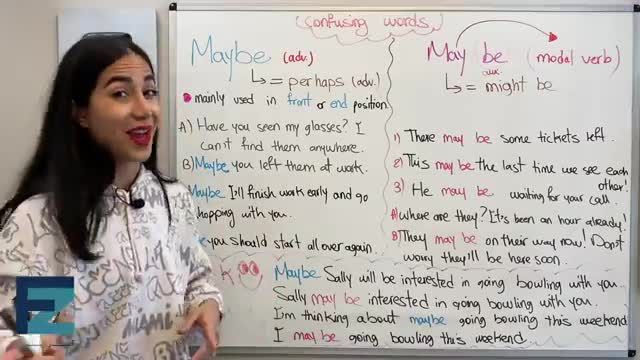 (confusing words)
Maybe (adv.)
↳ = perhaps (adv.)
mainly used in front or end position.
A) Have you seen my glasses? I
can't find them anywhere.
B) Maybe you left them at work.
Maybe I'll finish work early and go
hopping with you.
you should start all over again.
May be (modal verb)
aux.
↳ = might be
1) There may be some tickets left.
2) This may be the last time we see each
other!
3) He may be waiting for your call.
A) Where are they? It's been an hour already!
B) They may be on their way now! Don't
worry they'll be here soon.
Maybe Sally will be interested in going bowling with you.
Sally may be interested in going bowling with you.
I'm thinking about maybe going bowling this weekend
I may be going bowling this weekend.
QUEEN
MIAMI
EZ